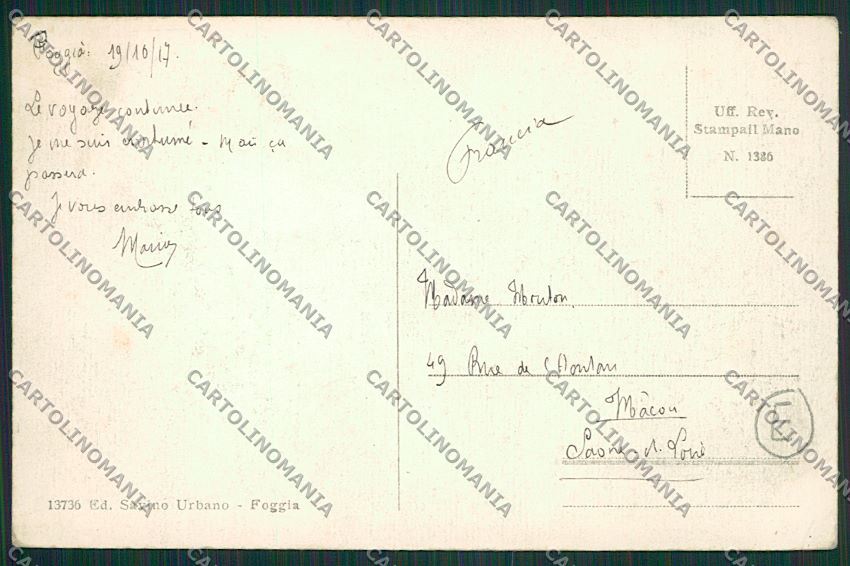 Foggia: 19/10/17.
Le voyage continue.
Je me suis enrhumé - Mais ça
passera.
Je vous embrasse tous
Francia
Uff. Rev.
Stampati Mano
N. 1386
Madame Mouton
49 Rue de
Mâcon
Saône et Loire
13736 Ed. Savino Urbano - Foggia
CARTOLINOMANIA